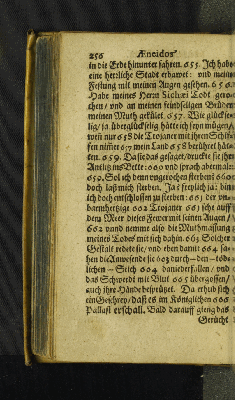 256 Æneidos
in die Erde hinunter fahren. 655. Ich habe
eine herrliche Stadt erbawet: und meine
Festung mit meinen Augen gesehen. 656
Habe meines Herrn Sichæi Todt gero-
chen/ und an meinen feindseligen Bruder
meinen Muth gekület. 657. Wie glückse-
lig/ ja überglückselig hätte ich seyn mügen/
wen nur 658 die Trojaner mit ihren Schif-
fen nimer 657 mein Land 658 berühret hät-
ten. 659. Da sie das gesaget/ druckte sie ihr
Antlitz ins Bette: 660 und sprach abermal:
650. Sol ich denn ungerochen sterben: 660
doch laß mich sterben. Ja: freylich ja: bin
ich doch entschlossen zu sterben: 661 der un-
barmhertzige 662 Trojaner 661 siht auff
dem Meer dieses Fewer mit seinen Augen/
662 und nemme also die Muthmassung
meines Todes mit sich dahin. 663 Solcher
Gestalt redete sie/ und eben damit 664 sa-
hen die Anwesende sie 663 durch-den-töd-
lichen-Stich 664 daniederfallen/ und
das Schwerdt mit Blut 665 übergossen/
auch ihre Hände besprützet. Da erhub sich
ein Geschrey/ daß es im Königlichen 666
Pallast erschall. Bald darauff gieng das
Gerücht